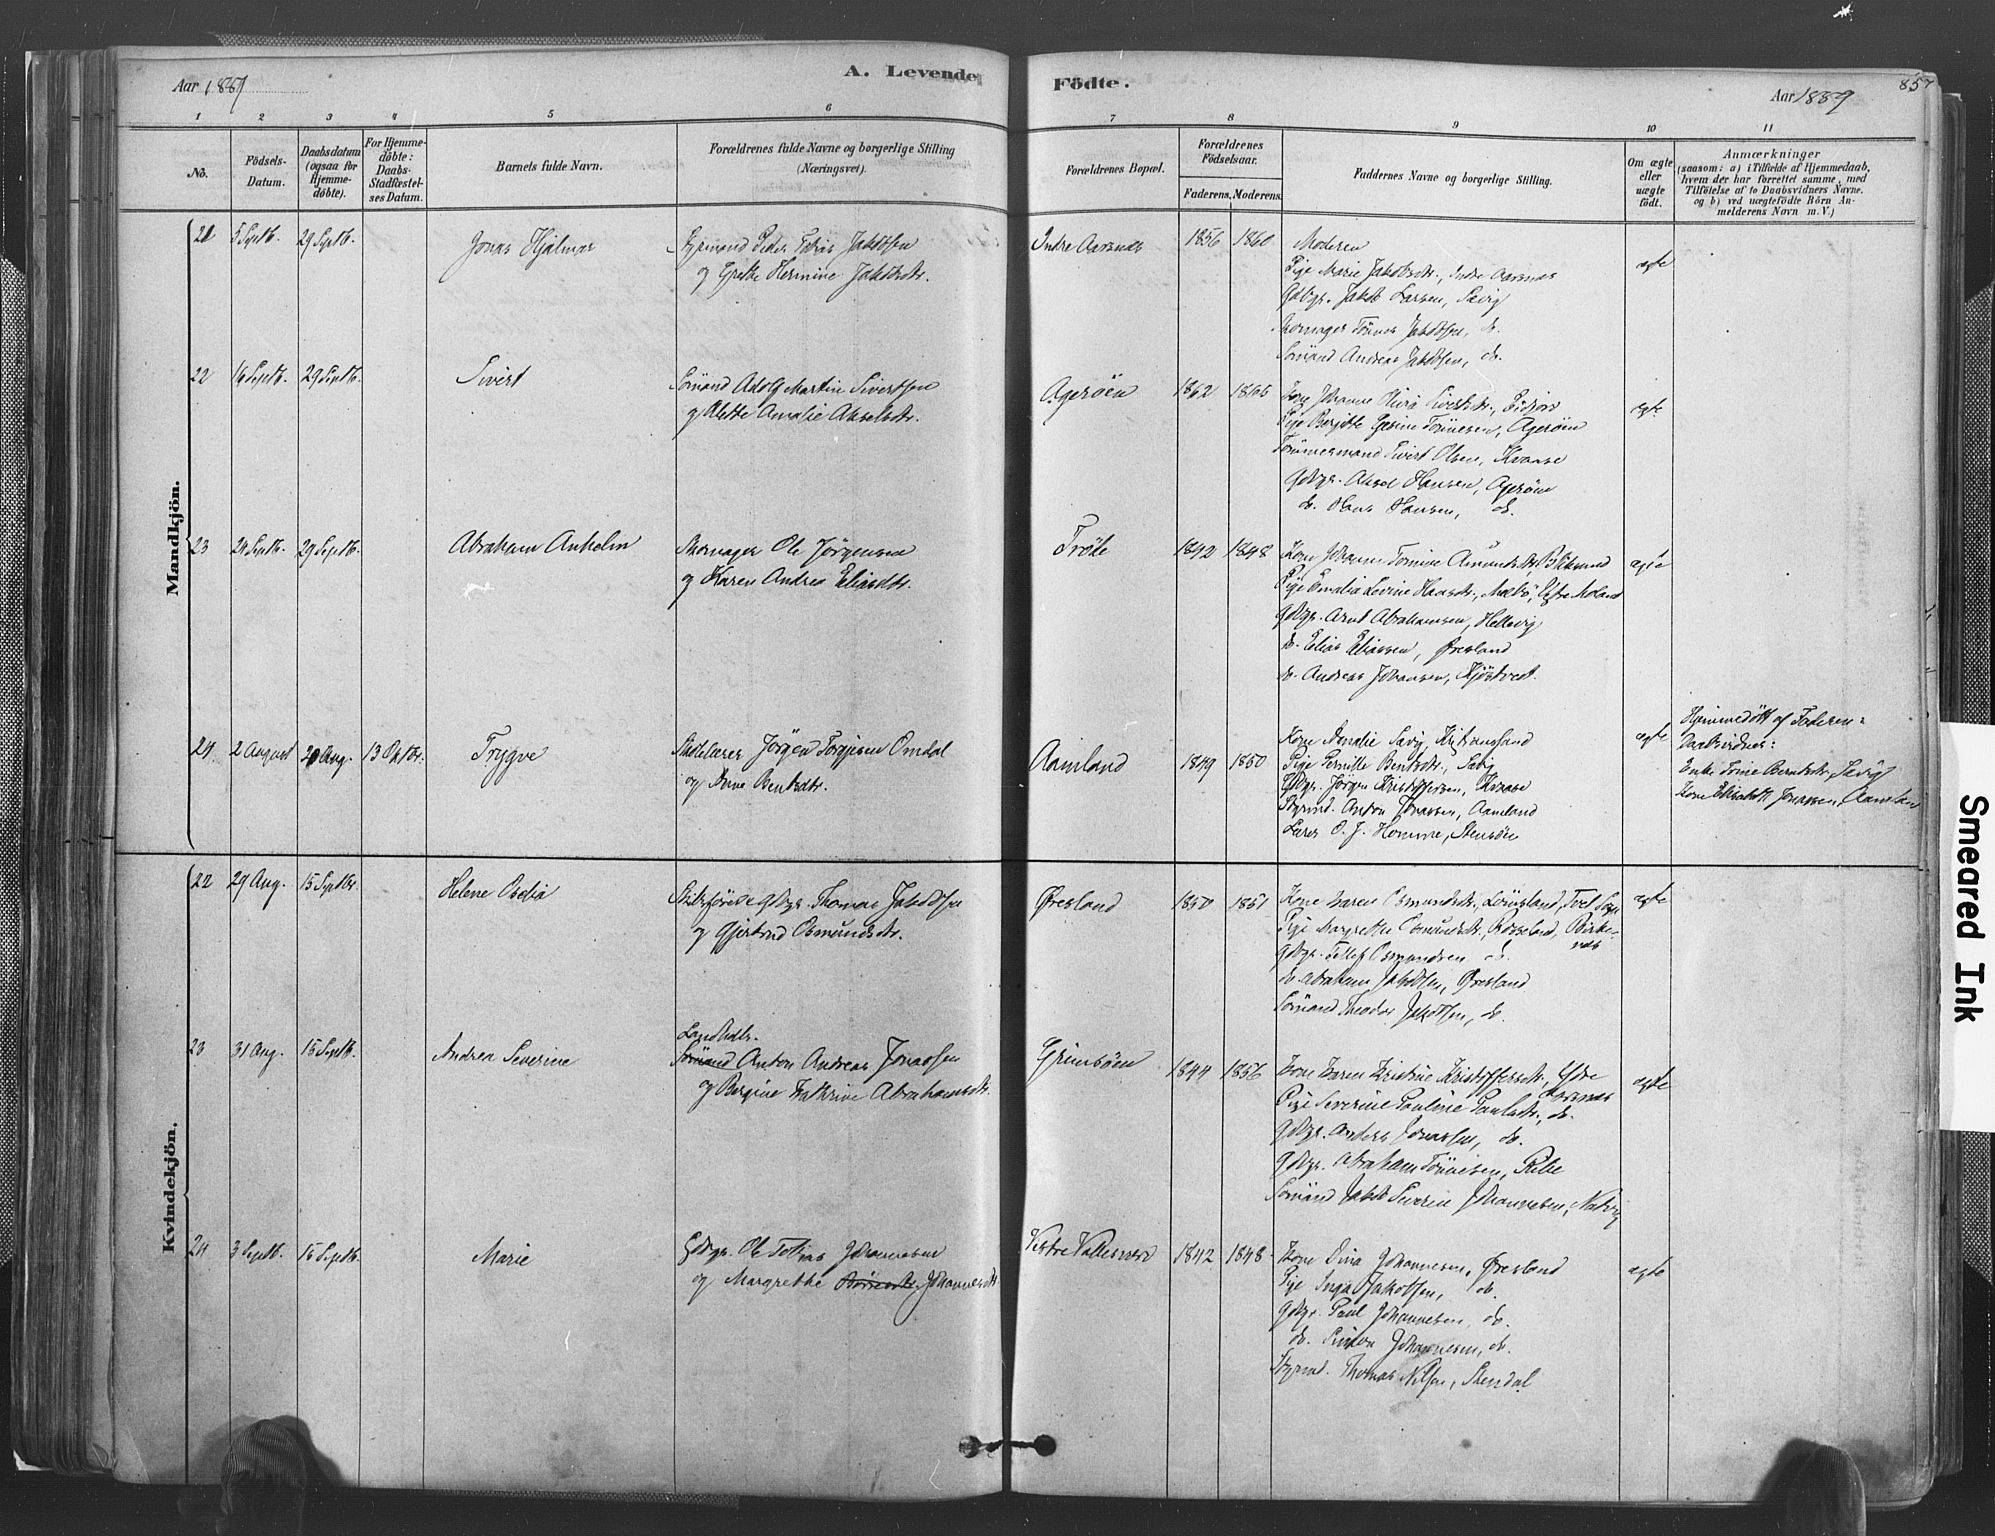 Aar 1889
A. Levende Födte.
Aar 1889
857
1 2 3 4 5 6 7 8 9 10 11
No.
Födsels-
Datum.
Daabsdatum
(ogsaa for
Hjemme-
döbte).
For Hjemme-
döbte:
Daabs-
Stadfæstel-
ses Datum.
Barnets fulde Navn.
Forældrenes fulde Navne og borgerlige Stilling
(Næringsvei).
Forældrenes Bopæl.
Forældrenes
Födselsaar.
Faderens. Moderens.
Faddernes Navne og borgerlige Stilling.
Om ægte
eller
uægte
født.
Anmærkninger
(saasom: a) i Tilfælde af Hjemmedaab,
hvem der har forrettet samme, med
Tilföielse af to Daabsvidners Navne.
og b) ved uægtefödte Börn An-
melderens Navn m. V.)
Mandkjön.
21 5 Septb. 29 Septb. Jonas Hjalmar
Styrmand Peder Tobias Jakobsen
og Grethe Hermine Jakobsdtr.
Indre Aarsnes 1856 1860
Moderen
Pige Marie Jakobsdtr., Indre Aarsnes
Gdbgr. Jakob Larsen, Sævig
Skomager Tönnes Jakobsen, do.
Sömand Andreas Jakobsen, do.
ægte
22 16 Septb. 29 Septb. Sivert
Sömand Adolf Martin Sivertsen
og Alette Amalie Akselsdtr.
Agerøen 1862 1865
Pige Bergitte Gesine Tönnesen, Agerøen
Tömmermand Sivert Olsen, Kvaase
Gdbgr. Aksel Hansen, Agerøen
do. Hans Hansen, do.
ægte
23 29 Septb. Abraham Anhelm
Skomager Ole Jörgensen
og Karen Andrea Eliasdtr.
Trøle 1842 1848
Kone Johanne Tomine Amundsdtr.,
Pige Emalie Levine Hansdtr.,
Gdbgr. Arnt Abrahamsen, Hellevig
do. Elias Eliassen, Øresland
do. Andreas Johansen, Kjøstvedt
ægte
24. 2 August 20 Aug. 13 Oktbr. Trygve
Skolelærer Jörgen Torgjusen Omdal
og Anne Bentsdtr.
Aamland 1849 1850
Kone Amalie Sævig, Kristianssand
Pige Pernille Bentsdtr., Sævig
Gdbgr. Jörgen Kristoffersen, Kvaase
Styrmd. Anton Jonassen, Aamland
Lærer O. J. Homme, Stensöen
ægte
Hjemmedöbt af Faderen:
Daabsvidner:
Enke Trine Berntsdtr., Sævig
Kone Elisabeth Jonassen, Aamland
Kvindekjön.
22 29 Aug. 15 Septbr. Helene Oselia
Skibsförer & Gdbgr. Thomas Jakobsen
og Gjertrud Osmundsdtr.
Øresland 1850 1851
Kone Karen Osmundsdtr., Tvet Sogn
Pige Margrethe Osmundsdtr., Birke-
næs
Gdbgr. Tellef Osmundsen do.
do. Abraham Jakobsen, Øresland
Sömand Theodor Jakobsen, do.
ægte
23 31 Aug. 15 Septb. Andrea Severine
Landhdlr.
Sömand Anton Andreas Jonassen
og Bergine Kathrine Abrahamsdtr.
Grimsöen 1844 1856
Kone Karen Kristine Kristoffersdtr., Ydre
Aarsnes
Pige Severine Pauline Paulsdtr., do.
Gdbgr. Anders Jonassen, do.
Gdbgr. Abraham Tönnesen, Ribe
Sömand Jakob Severin Johannesen,
ægte
24 3 Septb. 15 Septb. Marie
Gdbgr. Ole Tobias Johannesen
og Margrethe Johannesdtr.
Vestre Vallesverd 1842 1848
Kone Dina Johannesen, Øresland
Pige Inga Jakobsen, do.
Gdbgr. Paul Johannesen, do.
do. Simon Johannesen, do.
Styrmd. Thomas Nilsen, Stendal
ægte
Smeared Ink